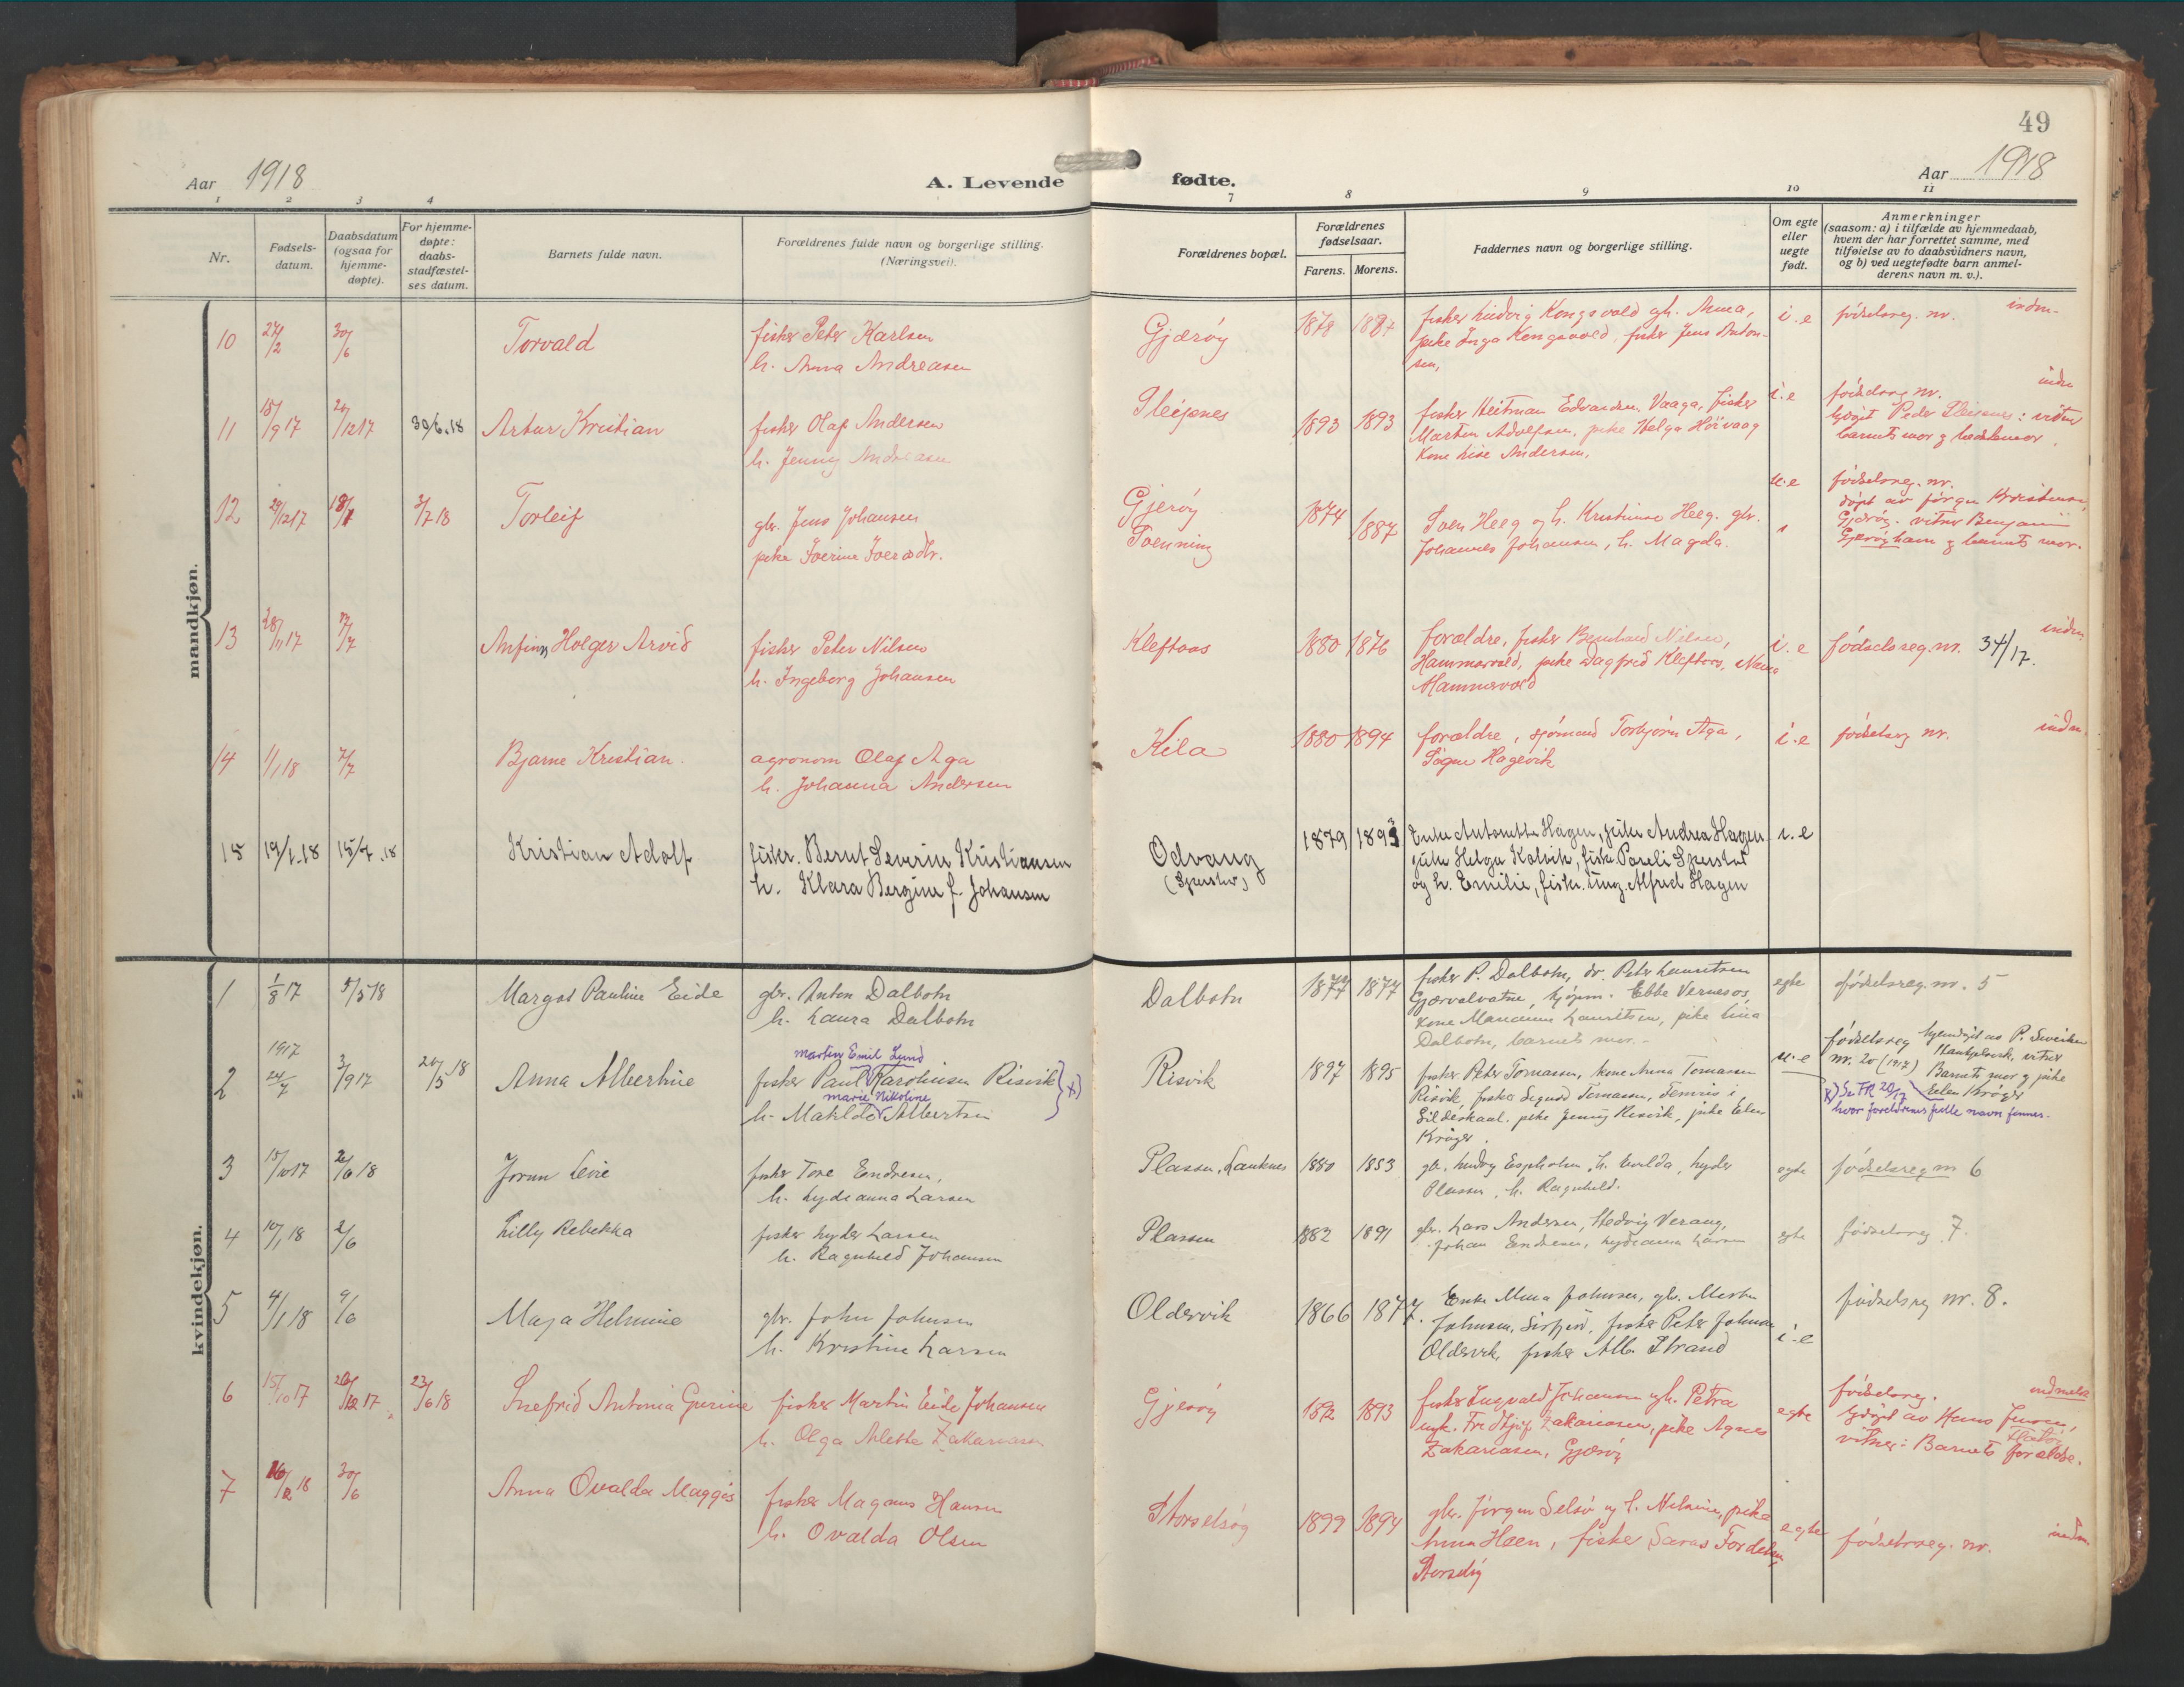 49
Aar 1918
A. Levende fødte.
Aar 1918
1 2 3 4 7 8 9 10 11
Nr.
Fødsels-
datum.
Daabsdatum
(ogsaa for
hjemme-
døpte).
For hjemme-
døpte:
daabs-
stadfæstel-
ses datum.
Barnets fulde navn.
Forældrenes fulde navn og borgerlige stilling.
(Næringsvei).
Forældrenes bopæl.
Forældrenes
fødselsaar.
Farens. Morens.
Faddernes navn og borgerlige stilling.
Om egte
eller
uegte
født.
Anmerkninger
(saasom: a) i tilfælde av hjemmedaab,
hvem der har forrettet samme, med
tilføielse av to daabsvidners navn,
og b) ved uegtefødte barn anmel-
derens navn m. v.).
mandkjøn.
10 27/2 30/6 Torvald
fisker Peter Karlsen
h. Anna Andreasen
Gjærøy 1878 1887
fisker Ludvig Kongsvold gh. Anna,
pike Inga Kongsvold, fisker Jens Anton-
sen,
i.e fødselsreg. nr. indm.
11 15/9 17 20/12 17 30/6.18 Artur Kristian
fisker Olaf Andersen
h. Jenny Andreasen
Pleipnes 1893 1893
fisker Heitman Edvardsen, Vaaga, fisker
Martin Adolfsen, pike Helga Hörvaag
Kone Lise Andersen.
i.e fødselsreg nr.
Peder Pleipnes: vitner
barnets mor g bedstemor.
12 29/12 17 18/1 3/7 18 Torleif
gbr. Jens Johansen
pike Iverine Iversdtr.
Gjerøy
Svenning
1874 1887
Sven Heeg og h. Kristine Heeg. gbr.
Johannes Johansen, h. Magda.
u.e fødselsreg. nr.
døpt av Jørgen Kristensen,
Gjærøy. vitner Benjamin
Gjerøyhavn g barnets mor.
13 28/11 17 7/7 Anfinn Holger Arvid
fisker Peter Nilsen
h. Ingeborg Johansen
Kleftaas 1880 1876
forældre, fisker Bernhard Nilsen,
Hammarvold, pike Dagfrid Kleftaas,
Hammarvold
i.e fødselsreg. nr. 34/17.
indm
14 1/1 18 7/7 Bjarne Kristian.
agronom Olaf Aga
h. Johanna Andersen
Kila 1880 1894
forældre, sjömand Torbjörn Aga,
Signe Hagevik
i.e fødselsreg nr. indm.
15 19/1.18 15/7.18 Kristian Adolf
fisker. Bernt Severin Kristiansen
h. Klara Bergine f. Johansen
Odvang
1879 1893
Enke Antonette Hagen, pike Andrea Hagen
pike Helga Kalvik, fisker Pareli Sperstad
og h. Emilie, fisker. ung. Alfred Hagen
i.e
kvindekjøn.
1 1/8 17 5/5 18 Margot Pauline Eide
gbr. Anton Dalbotn
h. Laura Dalbotn
Dalbotn 1877 1877
fisker P. Dalbotn, dr. Peter Lauritsen
Gjervalvatne, kjöpm. Ebbe Vernesos,
kone Marianne Lauritsen, pike Lina
Dalbotn, barnets mor.
egte fødselsreg. nr. 5
2 1917 24/7 3/9 17 20/5.18 Anna Albertine
Martin Emil Lund
fisker Paul Karolinsen Risvik
Marie Nikoline
h. Matilde Albertsen
x)
Risvik 1897 1895
fisker Peter Tomassen, kone Anna Tomassen
Risvik, fisker Sigurd Tomassen, Femris i
Gildeskaal, pike Jenny Risvik, pike Elen
Kröger.
u.e
fødselsreg
nr. 20 (1917)
hjemdøpt av P.
vitner
Barnets mor g pike
Elen Kröger
x) Se FR 20/17
hvor foreldrenes fulle navn finnes.
3 15/10 17 2/6 18 Jorun Levie
fisker Tore Endresen,
h. Lydeanna Larsen
Plassen, Lauknes 1880 1883
gbr. Ludvig Espholm, h. Evelda, Lyder
Plassen, h. Ragnhild.
egte fødselsreg nr 6
4 10/1 18 2/6 Lilly Rebekka
fisker Lyder Larsen
h. Ragnhild Johansen
Plassen 1882 1891
gbr. Lars Andersen, Hedvig Verang,
Johan Endresen, Lydeanna Larsen
egte fødselsreg 7.
5 4/1 18 9/6 Maja Helmine
gbr. John Johnsen
h. Kristine Larsen
Oldervik 1866 1877.
Enke Mina Johnsen, gbr. Martin
Johnsen, Sirfjord, fisker Peter Johnsen
Oldervik, fisker Alb. Strand
i.e
fødselsreg nr. 8.
6 15/10 17 26/12 17 23/6 18 Snefrid Antonia Gurine
fisker Martin Eide Johansen
h. Olga Alette Zakariasen
Gjerøy 1892 1893
fisker Ingvald Johansen gh. Petra
ugk. Fridtjof Zakariasen, pike Agnes
Zakariasen, Gjærøy
egte fødselsreg. indmeldt
hjdøpt av Hans Jensen,
vitner: Barnets forældre.
7 16/2 18 30/6 Anna Ovalda Maggis
fisker Magnus Hansen
h. Ovalda Olsen
Storselsøy 1899 1894
gbr. Jörgen Selsö og h. Nelsine, pike
Anna Haen, fisker Saras Fordelsen,
Storselöy
egte fødselsreg. nr. indm